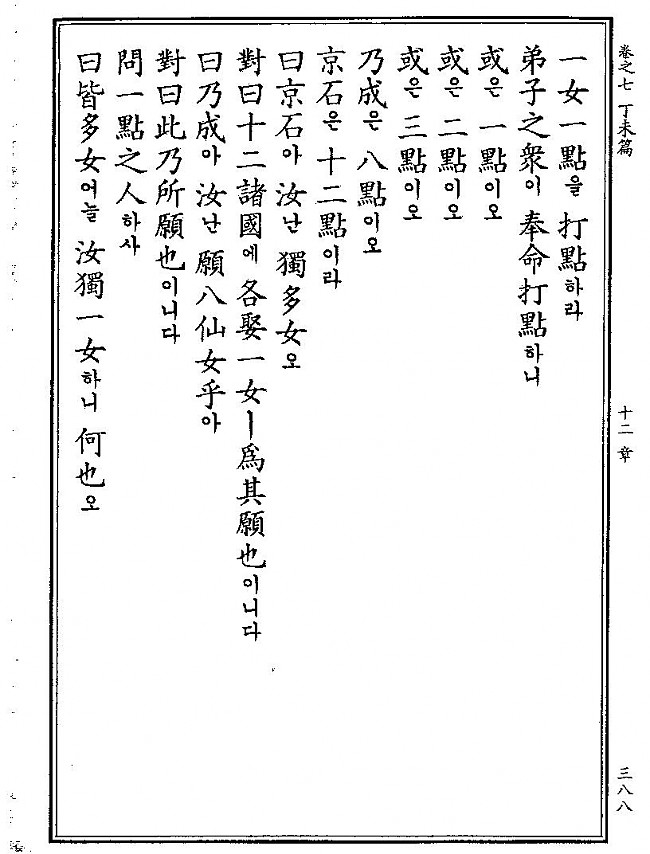 卷之七 丁未篇
十二章
三八八
一女一點을 打點하라
弟子之衆이 奉命打點하니
或은 一點이오
或은 二點이오
或은 三點이오
乃成은 八點이오
京石은 十二點이라
曰京石아 汝난 獨多女오
對曰十二諸國에 各娶一女ㅣ爲其願也이니다
曰乃成아 汝난 願八仙女乎아
對曰此乃所願也이니다
問一點之人하사
曰皆多女어늘 汝獨一女하니 何也오